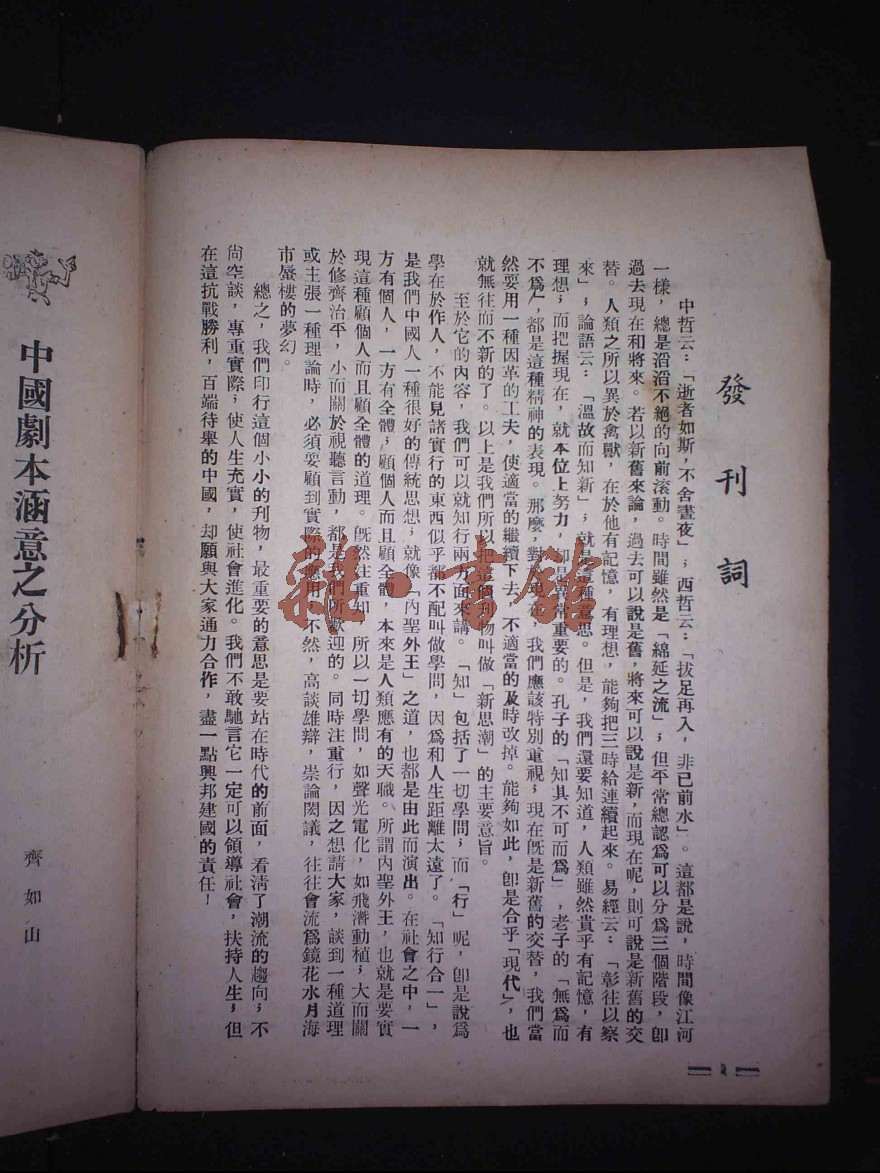 發刊詞
中哲云:「逝者如斯,不舍晝夜」;西哲云:「拔足再入,非已前水」。這都是說,時間像江河
一樣,總是滔滔不絕的向前滾動。時間雖然是「綿延之流」;但平常總認爲可以分爲三個階段,卽
過去現在和將來。若以新舊來論,過去可以說是舊,將來可以說是新,而現在呢,則可說是新舊的交
替。人類之所以異於禽獸,在於他有記憶,有理想,能夠把三時給連續起來。易經云:「彰往以察
來」;論語云:「溫故而知新」;就是這種意思。但是,我們還要知道,人類雖然貴乎有記憶,有
理想;而把握現在,就本位上努力,却是異常重要的。孔子的「知其不可而爲」,老子的「無爲而
不爲」,都是這種精神的表現。那麼,對於現在,我們應該特別重視;現在旣是新舊的交替,我們當
然要用一種因革的工夫,使適當的繼續下去,不適當的及時改掉。能夠如此,卽是合乎「現代」,也
就無往而不新的了。以上是我們所以把這個刊物叫做「新思潮」的主要意旨。
至於它的內容,我們可以就知行兩方面來講。「知」包括了一切學問;而「行」呢,卽是說爲
學在於作人,不能見諸實行的東西似乎都不配叫做學問,因爲和人生距離太遠了。「知行合一」,
是我們中國人一種很好的傳統思想;就像「內聖外王」之道,也都是由此而演出。在社會之中,一
方有個人,一方有全體;顧個人而且顧全體,本來是人類應有的天職。所謂內聖外王,也就是要實
現這種顧個人而且顧全體的道理。旣然注重知,所以一切學問,如聲光電化,如飛潛動植;大而關
於修齊治平,小而關於視聽言動,都是我們所歡迎的。同時注重行,因之想請大家,談到一種道理
或主張一種理論時,必須要顧到實際的應用,不然,高談雄辯,崇論閎議,往往會流爲鏡花水月海
市蜃樓的夢幻。
總之,我們印行這個小小的刊物,最重要的意思是要站在時代的前面,看清了潮流的趨向;不
尙空談,專重實際;使人生充實,使社會進化。我們不敢馳言它一定可以領導社會,扶持人生;但
在這抗戰勝利,百端待舉的中國,却願與大家通力合作,盡一點興邦建國的責任!
中國劇本涵意之分析
齊如山
雜·書館